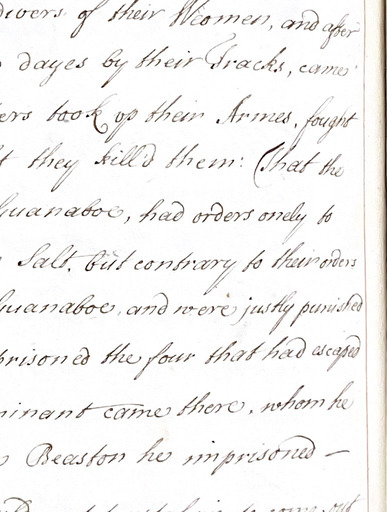 divers of their Women, and after
dayes by their Tracks, came
took up their Armes, fought
they kill'd them: That the
Guanaboe, had orders onely to
Salt. but contrary to their orders
Guanaboe, and were justly punished
prisoned the four that had escaped
came there, whom he
Beaston he imprisoned —